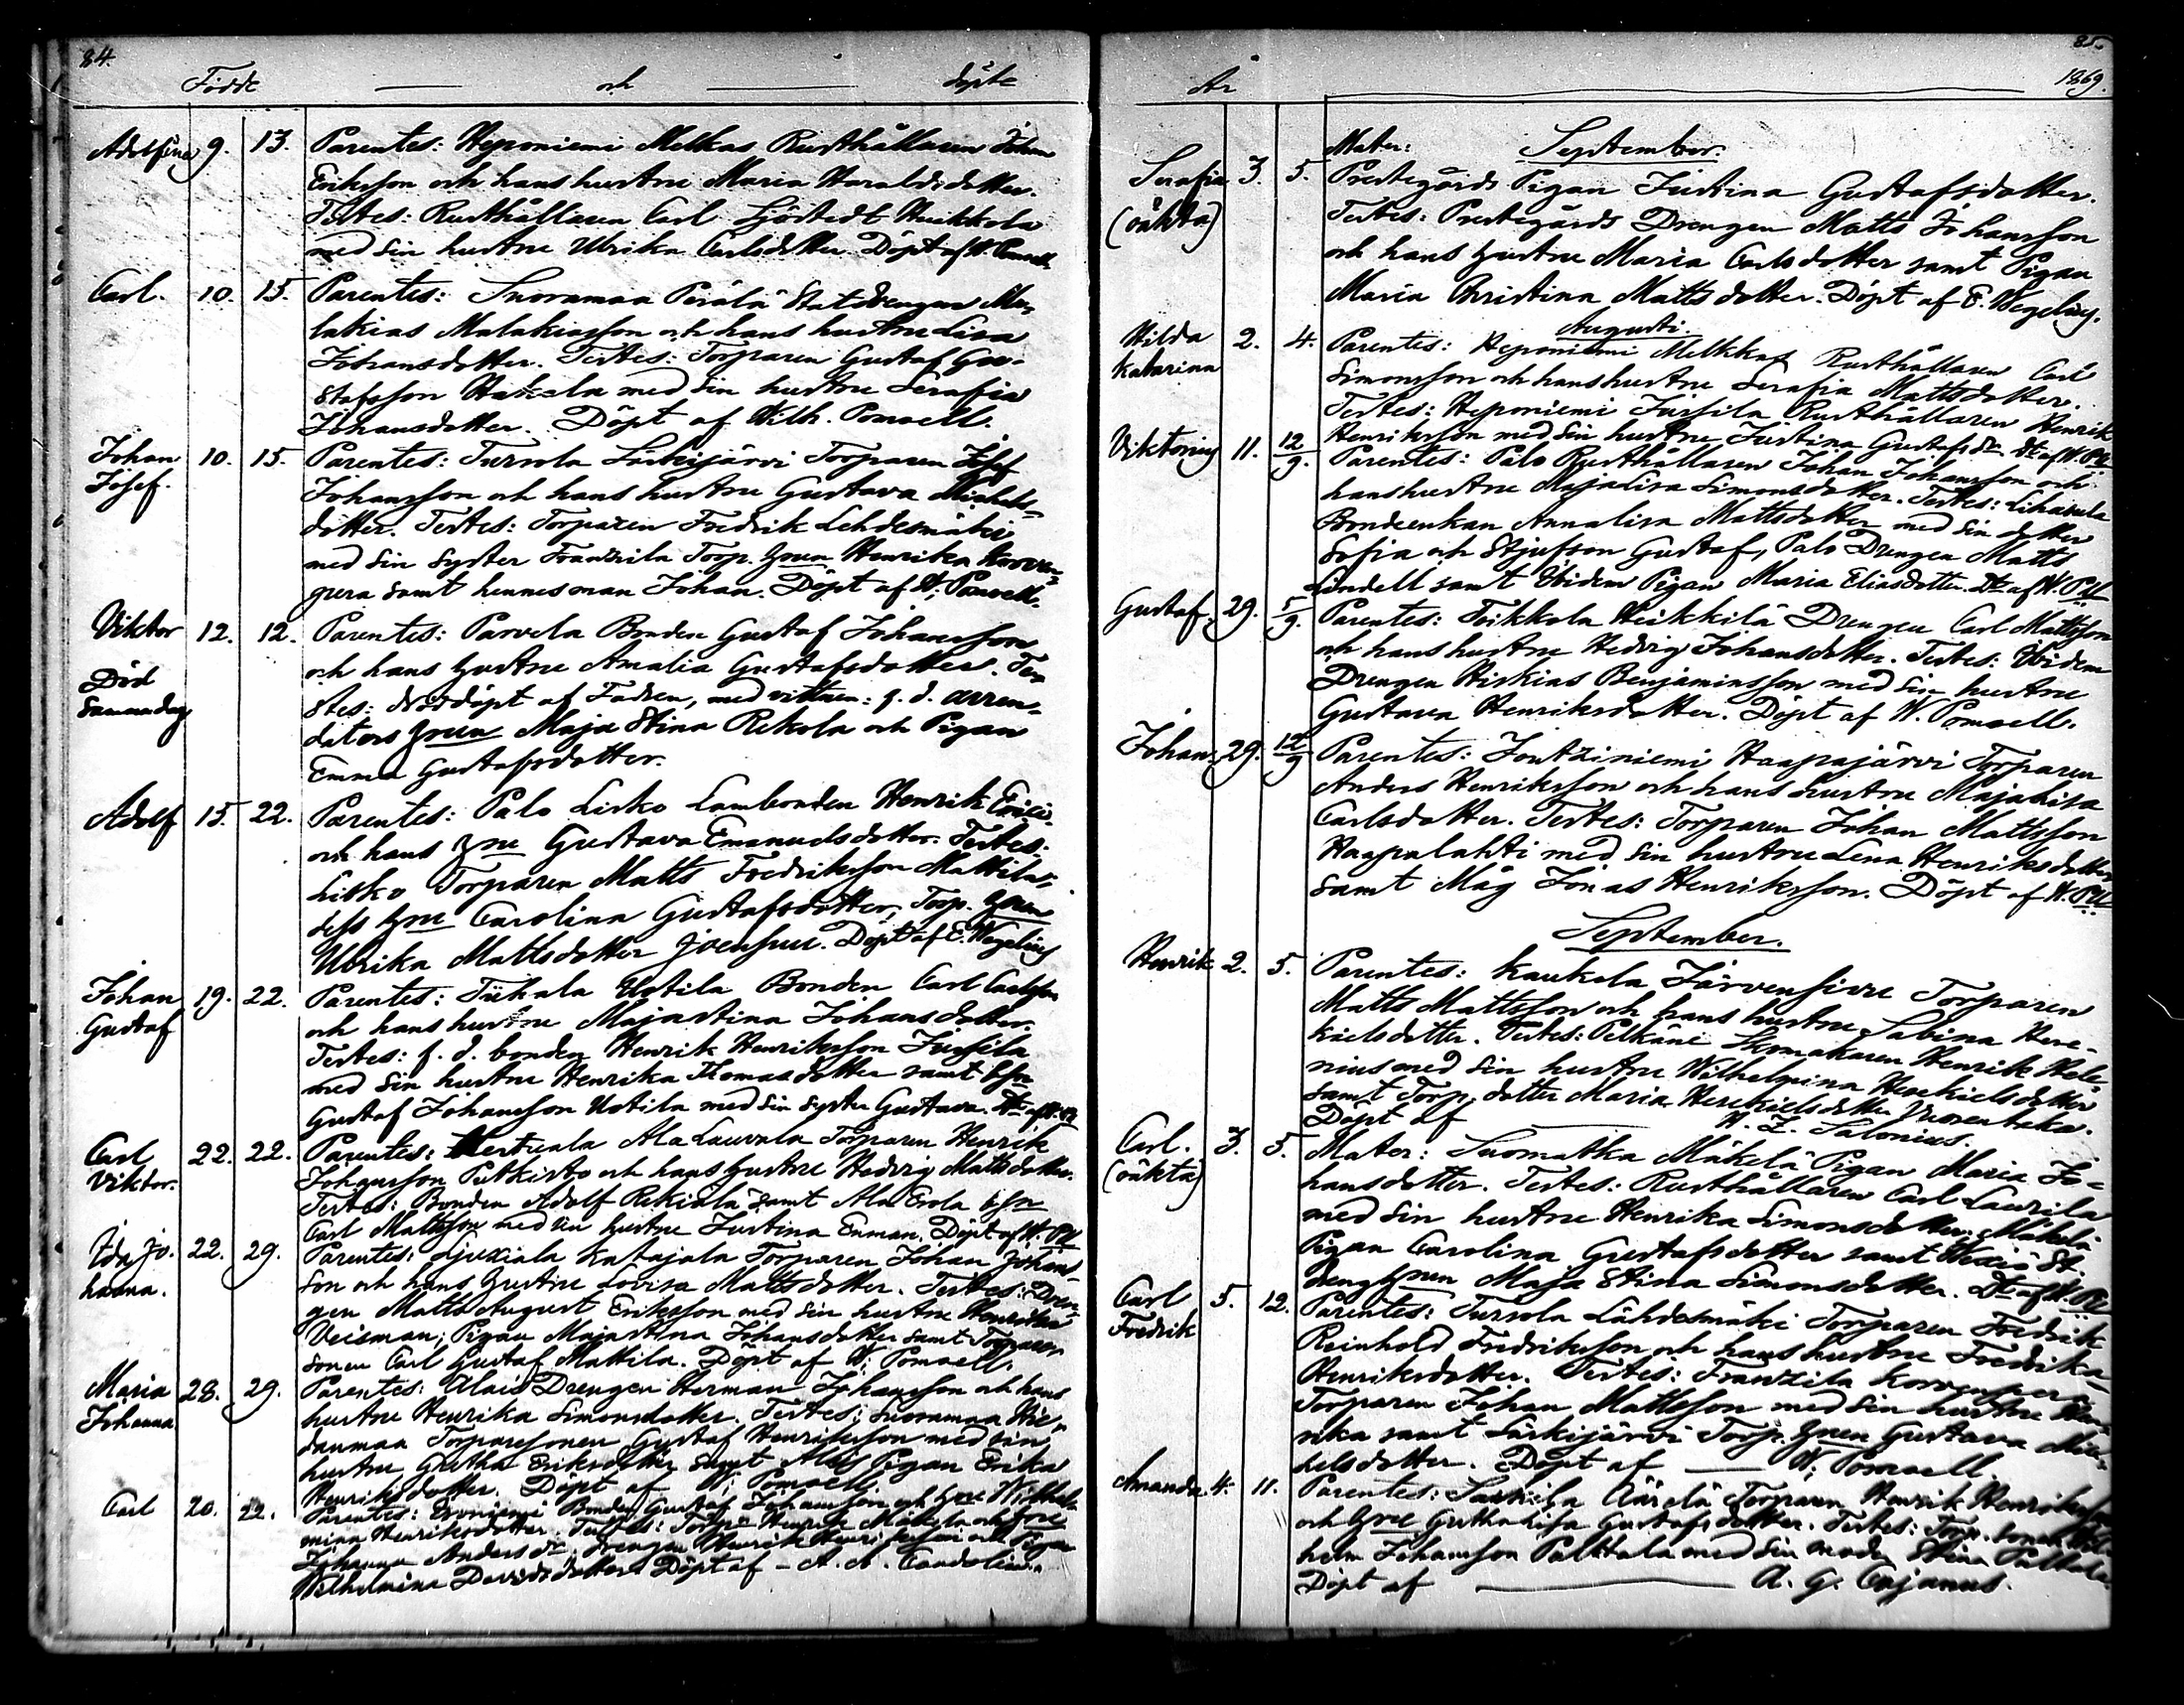 84.
Födde och döpte
Adolfina 9. 13. Parentes: Heponiemi Melkas Rusthållaren Johan
Eriksson och hans hustru Maria Haraldsdotter.
Testes: Rusthållaren Carl Sjöstedt
med sin hustru Ulrika Carlsdotter. Döpt af W. Pomoell
Carl. 10. 15. Parentes: Suoramaa Perälä Statdrengen Ma-
lakias Malakiasson och hans hustru Lisa
Johansdotter. Testes: Torparen Gustaf Gu-
stafsson Hakala med sin hustru Serafia
Johansdotter. Döpt af Wilh. Pomoell.
Johan Josef. 10. 15. Parentes: Tursola Särkijärvi Torparen Josef
Johansson och hans hustru Gustava Michels-
dotter. Testes: Torparen Fredrik Lehdesmäki
med sin syster Franzila Torp. hrun Henrika Korven-
pera samt hennes man Johan. Döpt af W. Pomoell.
Viktor 12. 12. Parentes: Parvela Bonden Gustaf Johansson
och hans hustru Amalia Gustafsdotter. Te-
Död samma dag
stes: Nöddöpt af Fadren, med vittnen: f. d. arren-
dators hrun Maja Stina Rekola och Pigan
Emma Gustafsdotter.
Adolf 15. 22. Parentes: Palo Lisko Lambonden Henrik Erici-
och hans hru Gustava Emanuelsdotter. Testes:
Lisko Torparen Matts Fredriksson Mattila,
dess hru Carolina Gustafsdotter, Torp. hrun
Ulrika Mattsdotter Joensuu. Döpt af E. Wegelius
Johan Gustaf 19. 22. Parentes: Tükala Uotila Bonden Carl Carlsson
och hans hustru Majastina Johansdotter.
Testes: f. d. bonden Henrik Henriksson Jussila
med sin hustru Henrika Thomasdotter samt
Gustaf Johansson Uotila med sin syster Gustava.
Carl Viktor. 22. 22. Parentes: Ala Lauvola Torparen Henrik
Johansson Putkisto och hans hustru Hedvig Mattsdotter.
Testes: Bonden Adolf Rekiälä samt Ala Erola
Carl Mattsson med sin hustru Justina Enman. Döpt af W. Pll
Ida Jo-hanna. 22. 29. Parentes: Katajala Torparen Johan Johans-
son och hans hustru Lovisa Mattsdotter. Testes: Dren-
gen Matts August Eriksson med sin hustru Henrika
Veisman, Pigan Majastina Johansdotter samt Torpare-
sonen Carl Gustaf Mattila. Döpt af W. Pomoell.
Maria Johanna 28. 29. Parentes: Alais Drengen Herman Johansson och hans
hustru Henrika Simonsdotter. Testes: Suoramaa Hie-
danmaa Torparesonen Gustaf Henriksson med sin
hustru Gretha Eriksdotter samt Alais Pigan Erika
Henriksdotter. Döpt af W. Pomoell.
Carl 20. 22. Parentes: Eroniemi Bonden Gustaf Johansson och hru Wilhel-
mina Henriksdotter. Testes: Torp. Henrik Mäkelä och hru
Johanna Andersdr. Drengen Henrik Henriksson och Pigan
Wilhelmina Davidsdotter. Döpt af - A. A. Candolin.
85.
År 1869.
September.
Serafia (oäkta) 3. 5. Mater:
Prestegårds Pigan Justina Gustafsdotter.
Testes: Prestegårds Drengen Matts Johansson
och hans hustru Maria Carlsdotter samt Pigan
Maria Christina Mattsdotter. Döpt af E. Wegelius.
Augusti.
Hilda Katarina 2. 4. Parentes: Heponiemi Melkkas Rusthållaren Carl
Simonsson och hans hustru Serafia Mattsdotter.
Testes: Heponiemi Jussila Rusthållaren Henrik
Henriksson med sin hustru Justina Gustafsdr. Dt af W. Pll
Viktorius 11. 12/9. Parentes: Palo Rusthållaren Johan Johansson och
hans hustru Majalisa Simonsdotter. Testes: Lihasula
Bondeenkan Annalisa Mattsdotter med sin dotter
Sofia och Stjufson Gustaf, Palo Drengen Matts
Lindell samt Ibidem Pigan Maria Eliasdotter. Dt af W. Pll
Gustaf. 29. 5/9. Parentes: Toikkola Heikkilä Drengen Carl Mattsson
och hans hustru Hedvig Johansdotter. Testes: Ibidem
Drengen Hiskias Benjaminsson med sin hustru
Gustava Henriksdotter. Döpt af W. Pomoell.
Johan 29. 12/9 Parentes: Jontziniemi Haapajärvi Torparen
Anders Henriksson och hans hustru Majalisa
Carlsdotter. Testes: Torparen Johan Mattsson
Haapalahti med sin hustru Lena Henriksdotter
samt Måg Jonas Henriksson. Döpt af W. Pll.
September.
Henrik 2. 5. Parentes: Kaukola Järvensivu Torparen
Matts Mattsson och hans hustru Sabina Hese-
kielsdotter. Testes: Pelkäne Skomakaren Henrik Hele-
nius med sin hustru Wilhelmina Hesekielsdotter
samt Torp. dotter Maria Hesekielsdotter Vuorenbaka.
Döpt af W. Z. Salonius.
Carl. (oäkta) 3. 5. Mater: Suomatka Mäkelä Pigan Maria Jo-
hansdotter. Testes: Rusthållaren Carl Laurila
med sin hustru Henrika Simonsdotter, Mäkelä
Pigan Carolina Gustafsdotter samt St.
dreng hrun Maja Stina Simonsdotter. Dt af W. Pll
Carl Fredrik 5. 12. Parentes: Tursola Lähdesmäki Torparen Fredrik
Reinhold Fredriksson och hans hustru Fredrika
Henriksdotter. Testes: Franzila Korvenpera
Torparen Johan Mattsson med sin hustru Hen-
rika samt Särkijärvi Torp. hrun Gustava Mic-
helsdotter. Döpt af W. Pomoell.
Amanda 4. 11. Parentes: Äärelä Torparen Henrik Henriksson
och hru Gretha Lisa Gustafsdotter. Testes: Torp. sonen Wil-
helm Johansson Palttala med sin moder Stina Palttala.
Döpt af A. G. Cajanus.